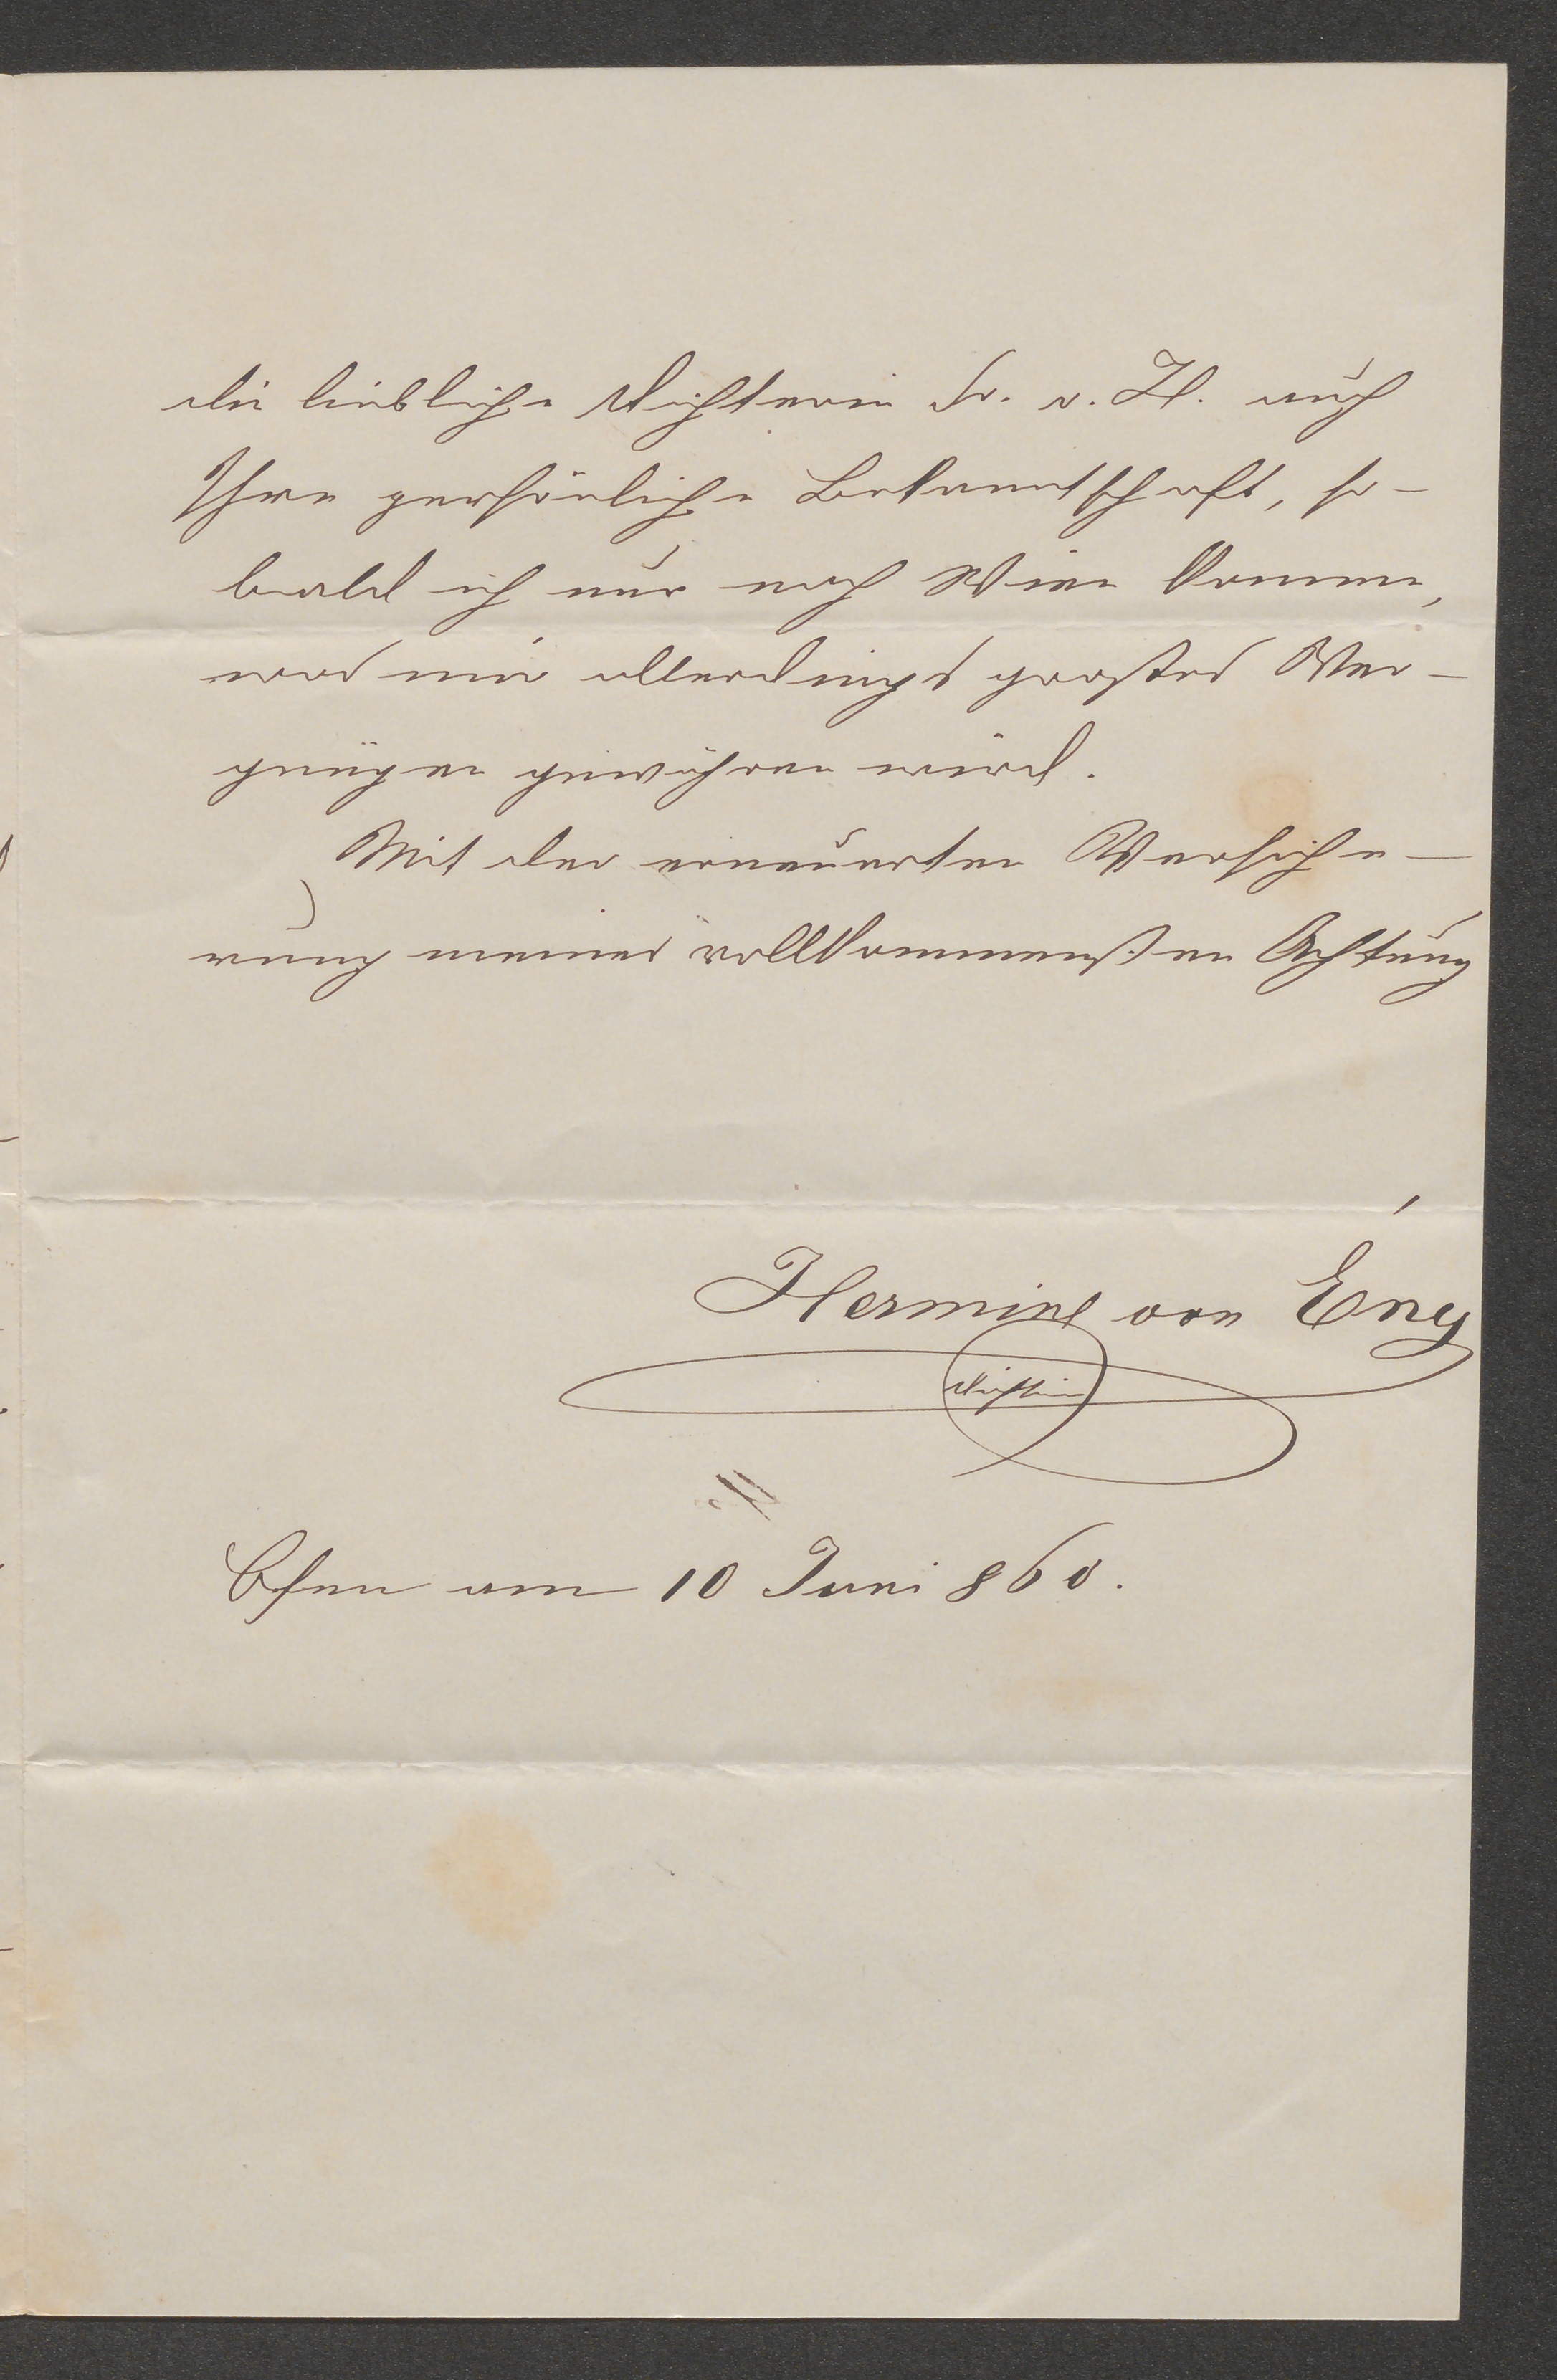 die liebliche Dichterin Fr. v. H. auch
Ihre persönliche Bekanntschaft, so-
bald ich nur nach Wien komme,
was mir allerdings großes Ver-
gnügen gewähren wird.
Mit der erneuerten Versiche-
rung meiner vollkommensten Achtung
Hermine von Ény
Ofen am 10 Juni 860.